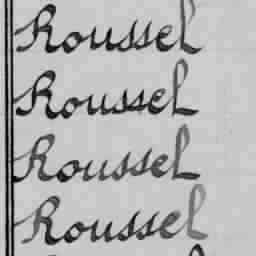 Roussel
Roussel
Roussel
Roussel